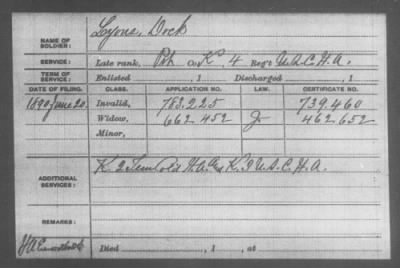 NAME OF SOLDIER: Lyons, Dock
SERVICE: Late rank, Pvt Co. K, 4 Reg't U.S.C.H.A.
TERM OF SERVICE: Enlisted , 1 Discharged , 1
DATE OF FILING. CLASS. APPLICATION NO. LAW. CERTIFICATE NO.
1890 June 20. Invalid, 783.225 739.460
Widow, 662.452 462.652
Minor,
ADDITIONAL SERVICES: K 2 Tenn Cold H.A. K. U.S.C.H.A.
REMARKS:
Died , 1 , at